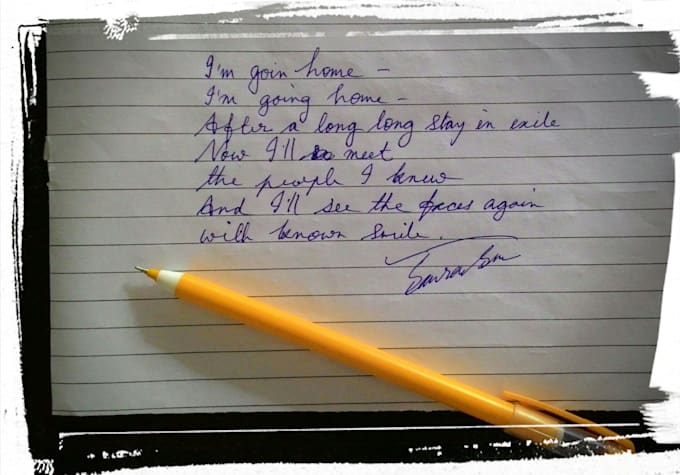 I'm goin home –
I'm going home –
After a long long stay in exile
Now I'll meet
the people I knew
And I'll see the faces again
with known smile.